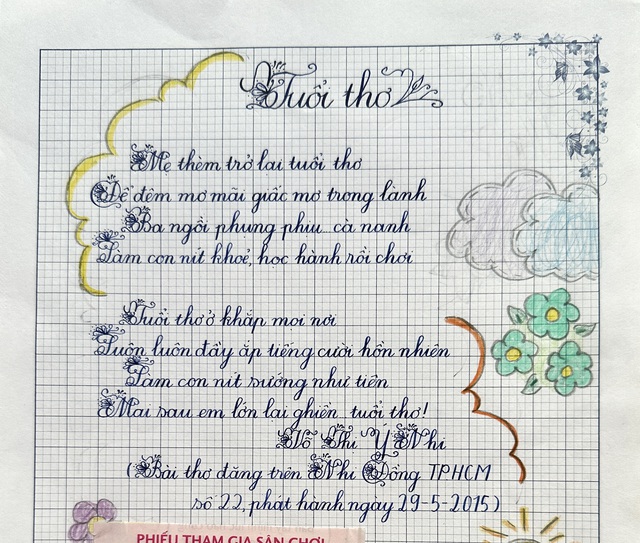 Tuổi thơ
Mẹ thèm trở lại tuổi thơ
Để đêm mơ mãi giấc mơ trong lành
Ba ngồi phụng phịu cà nanh
Làm con nít khoẻ, học hành rồi chơi
Tuổi thơ ở khắp mọi nơi
Luôn luôn đầy ắp tiếng cười hồn nhiên
Làm con nít sướng như tiên
Mai sau em lớn lại ghiền tuổi thơ!
Võ Thị Ý Nhi
(Bài thơ đăng trên Nhi Đồng TPHCM
số 22, phát hành ngày 29-5-2015)
PHIẾU THAM GIA SÂN CHƠI